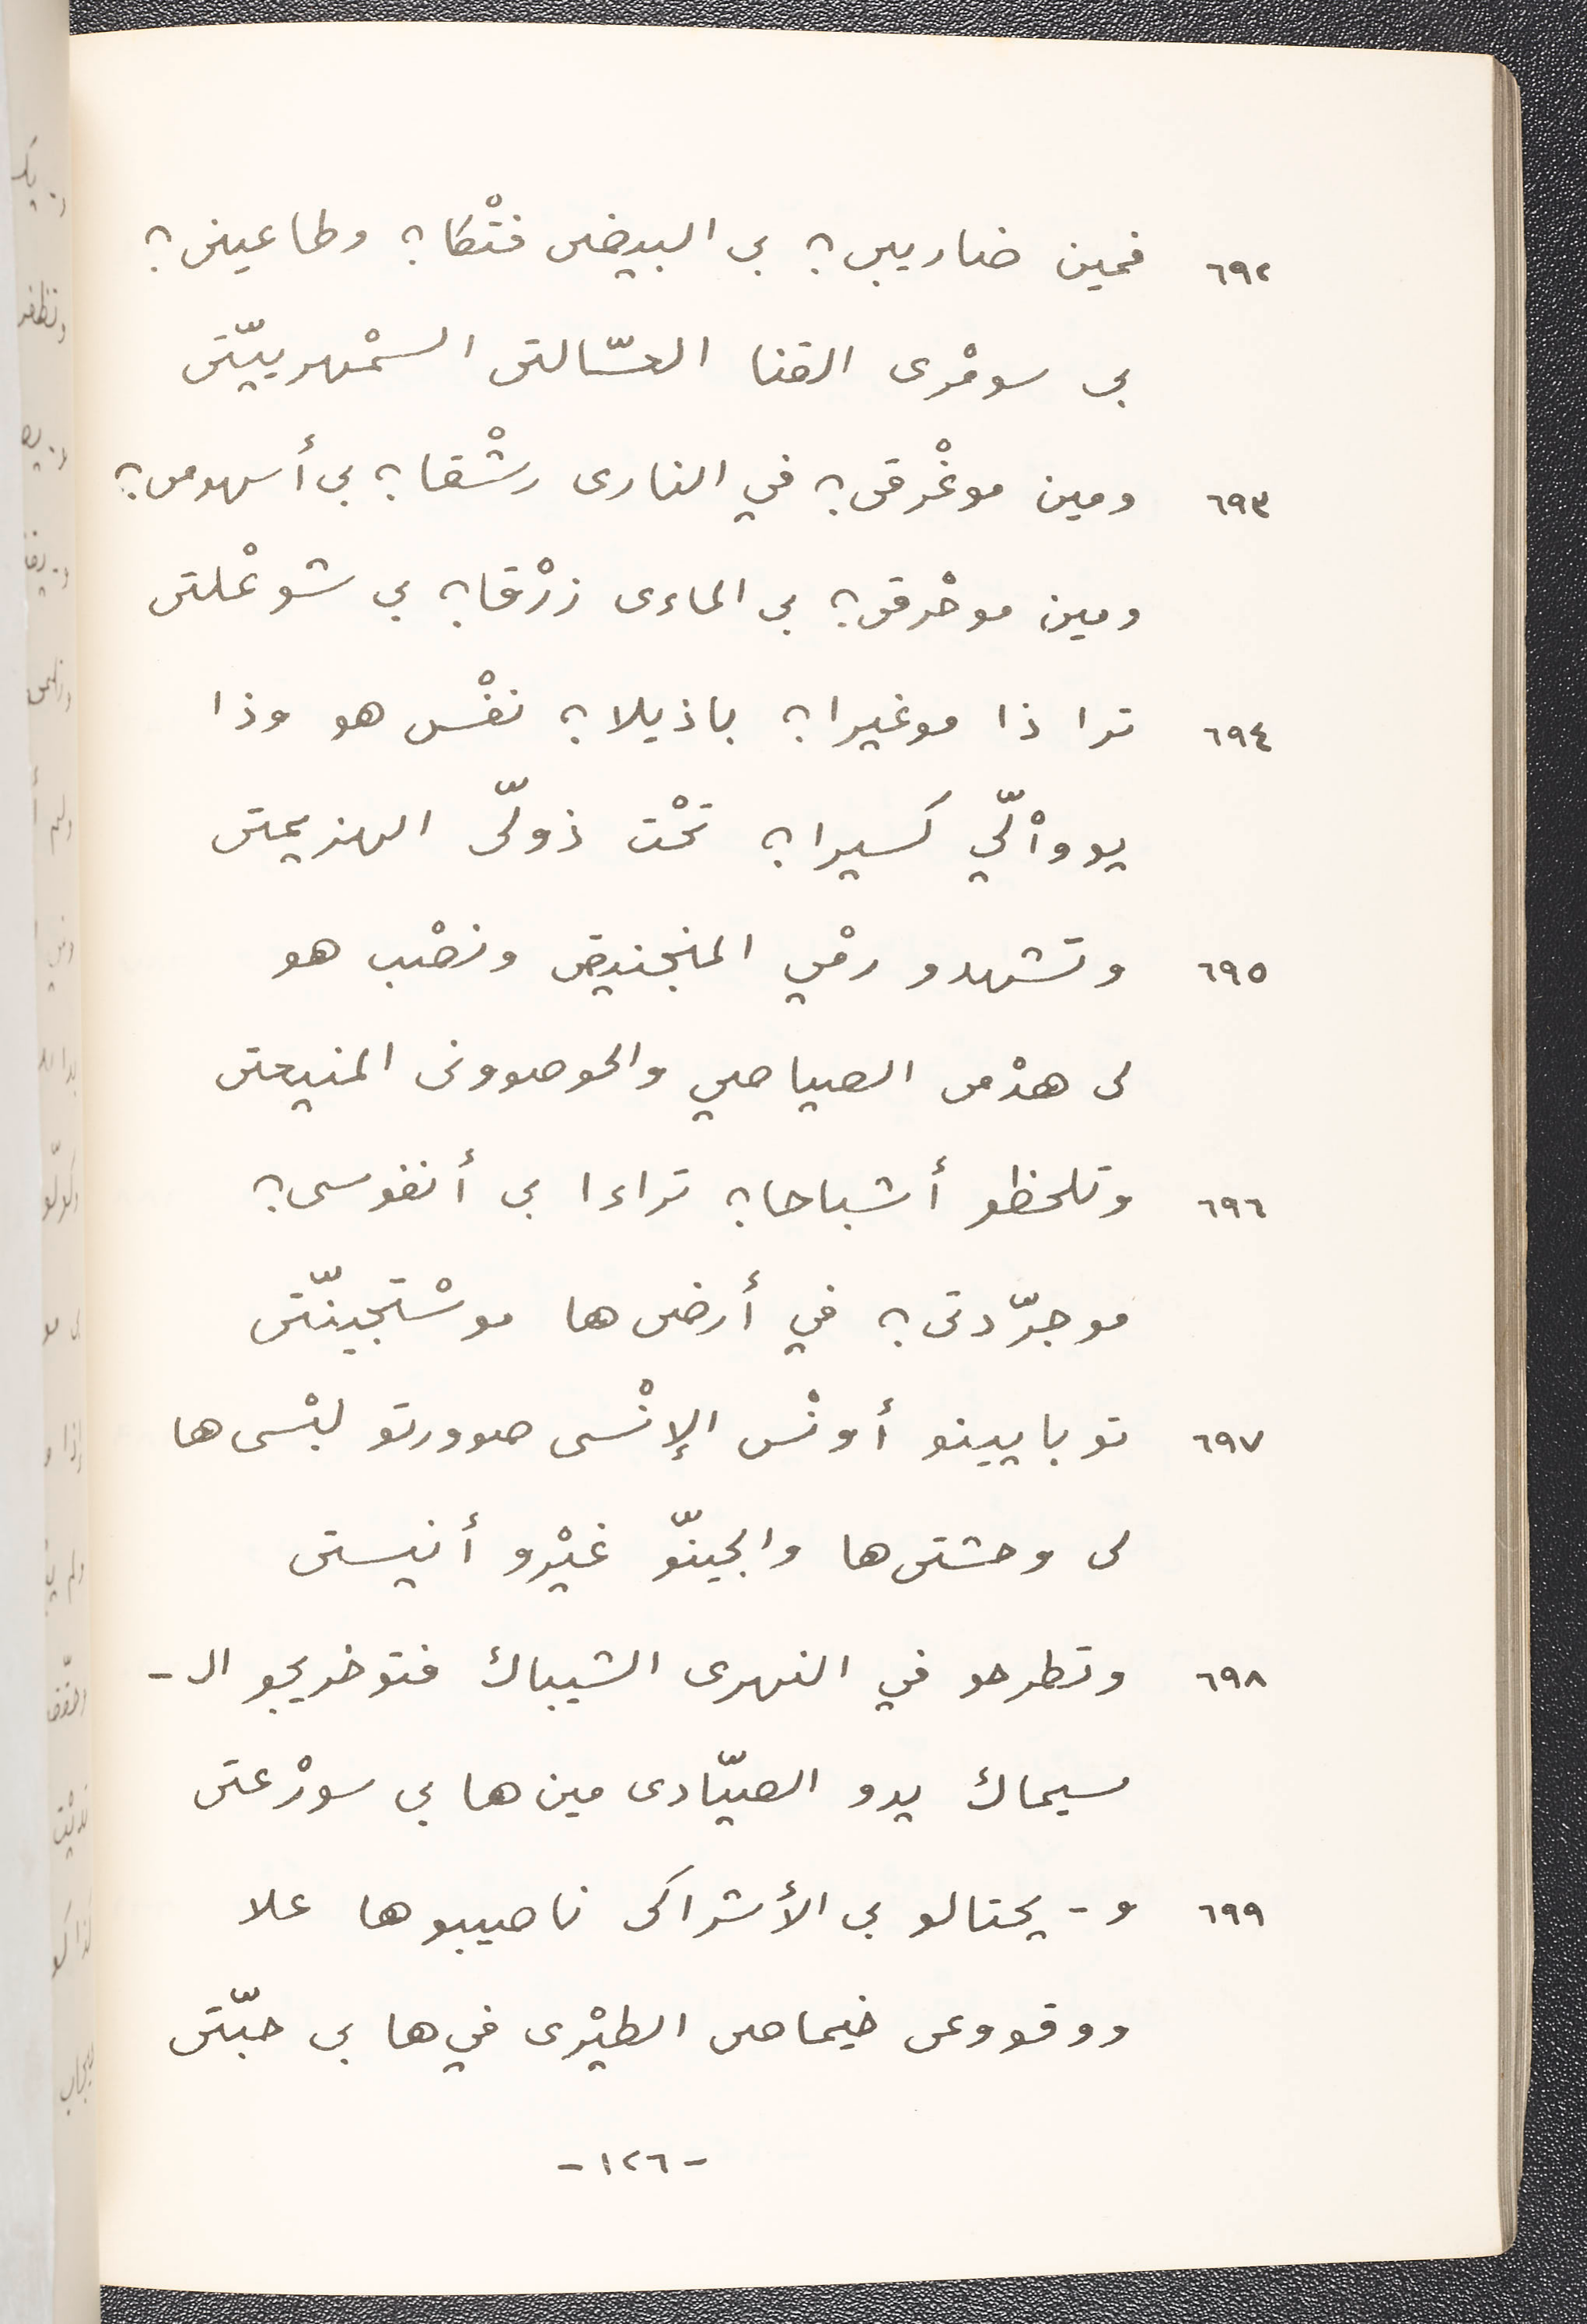 ٦٩٢ فمين ضاريبى؟ بى البيضى فتْكا؟ وطاعينى؟
بى سومْرى القنا العسّالتى السمْهرييّتى
٦٩٣ ومين موغْرقى؟ في النارى رشْقا؟ بى أسهومى؟
ومين موحْرقى؟ بى الماءى زرْقا؟ بى شوعْلتى
٦٩٤ ترا ذا موغيرا؟ باذيلا؟ نفْس هو وذا
يووالّي كسيرا؟ تحْت ذولّى الهزيمتى
٦٩٥ وتشهدو رمْي المنجنيقى ونصْب هو
لى هدْمى الصياصي والحوصوونى المنيعتى
٦٩٦ وتلحظو أشباحا؟ تراءا بى أنفوسى؟
موجرّدتى؟ في أرضى ها موسْتجينّتى
٦٩٧ توباينو أونْس الإنْسى صوورتو لبْسى ها
لى وحشتى ها والجينّو غيْرو أنيستى
٦٩٨ وتطرحو في النهرى الشيباك فتوخريجو الـ -
سيماك يدو الصيّادى مين ها بى سورْعتى
٦٩٩ و - يحتالو بى الأشراكى ناصيبو ها علا
ووقووعى خيماصى الطيْرى في ها بى حبّتى
- ١٢٦ -